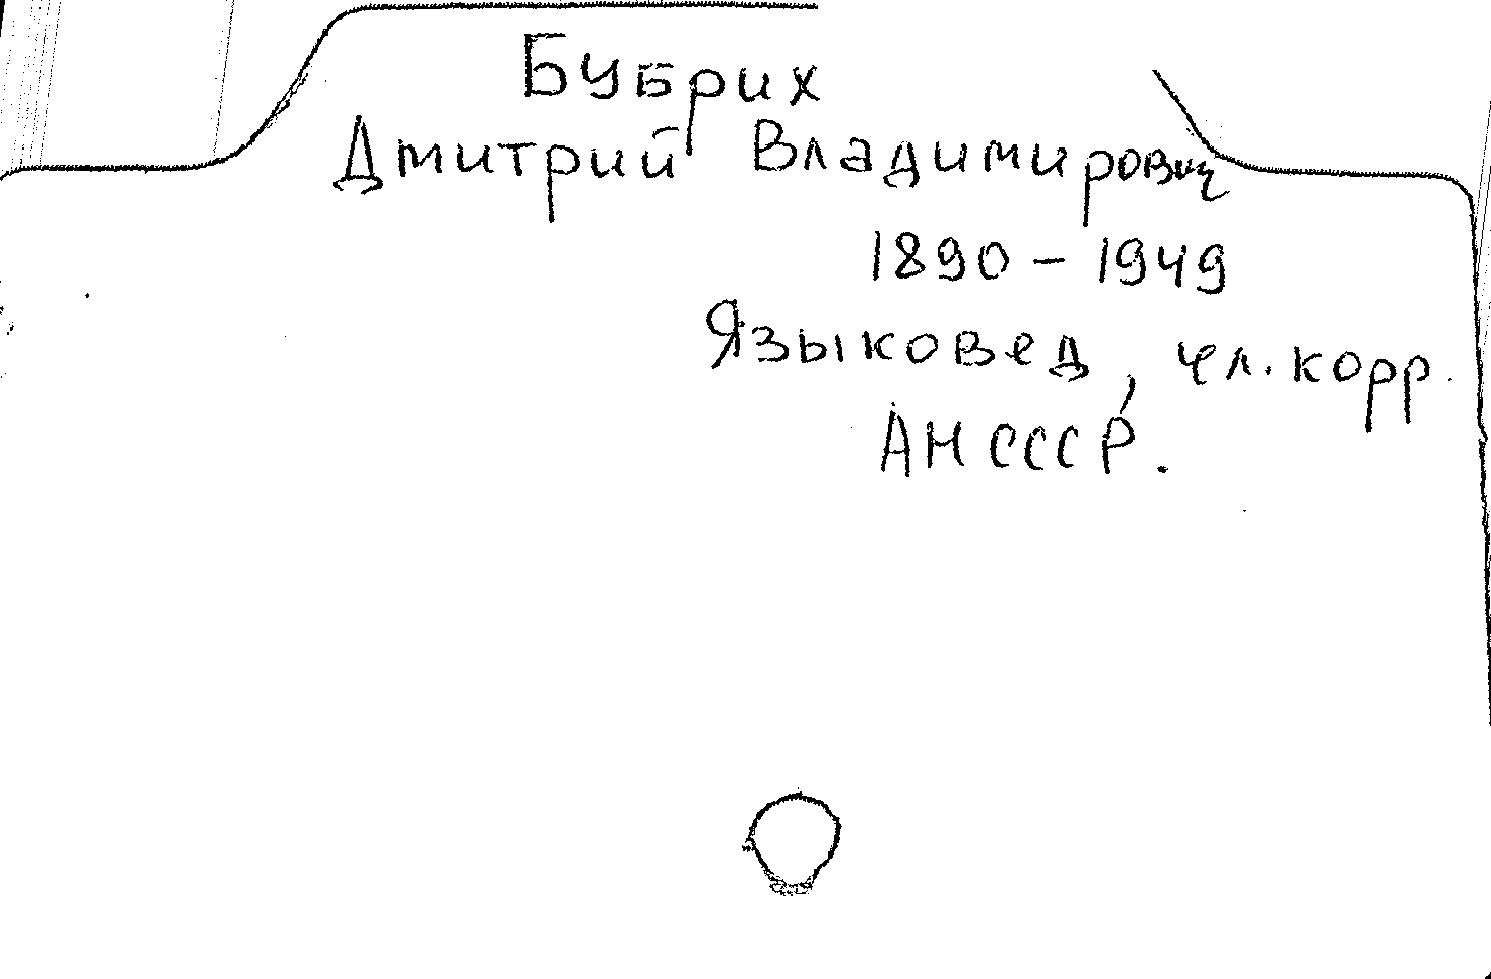 Бубрих
Дмитрий Владимирович
1890 – 1949
Языковед, чл. корр.
АН СССР.